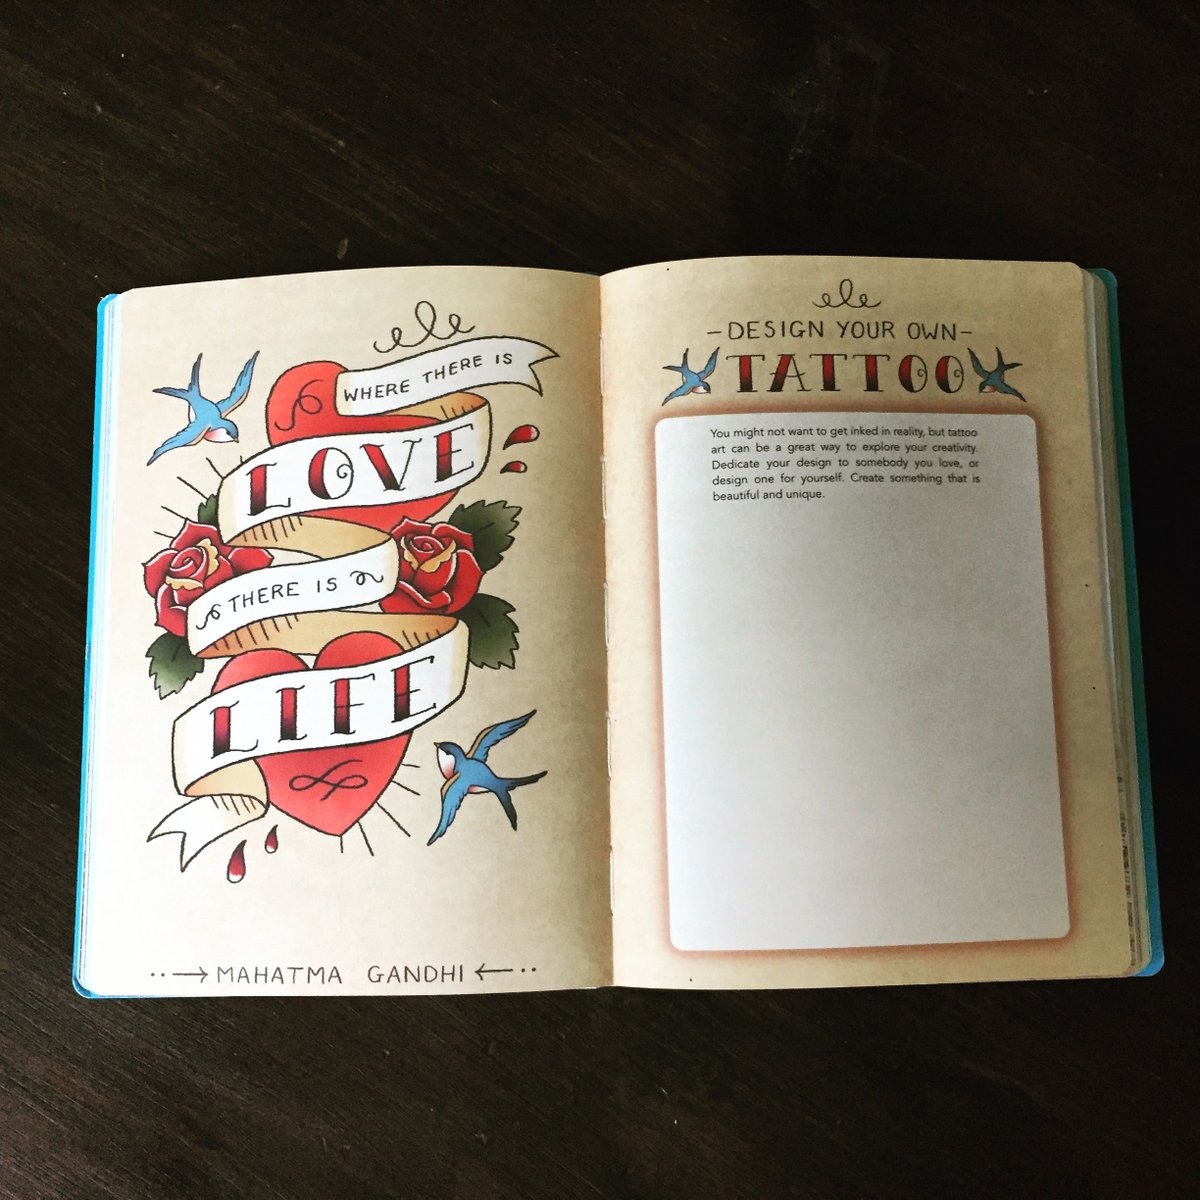 WHERE THERE IS
LOVE
THERE IS
LIFE
MAHATMA GANDHI
-DESIGN YOUR OWN-
TATTOO
You might not want to get inked in reality, but tattoo
art can be a great way to explore your creativity.
Dedicate your design to somebody you love, or
design one for yourself. Create something that is
beautiful and unique.